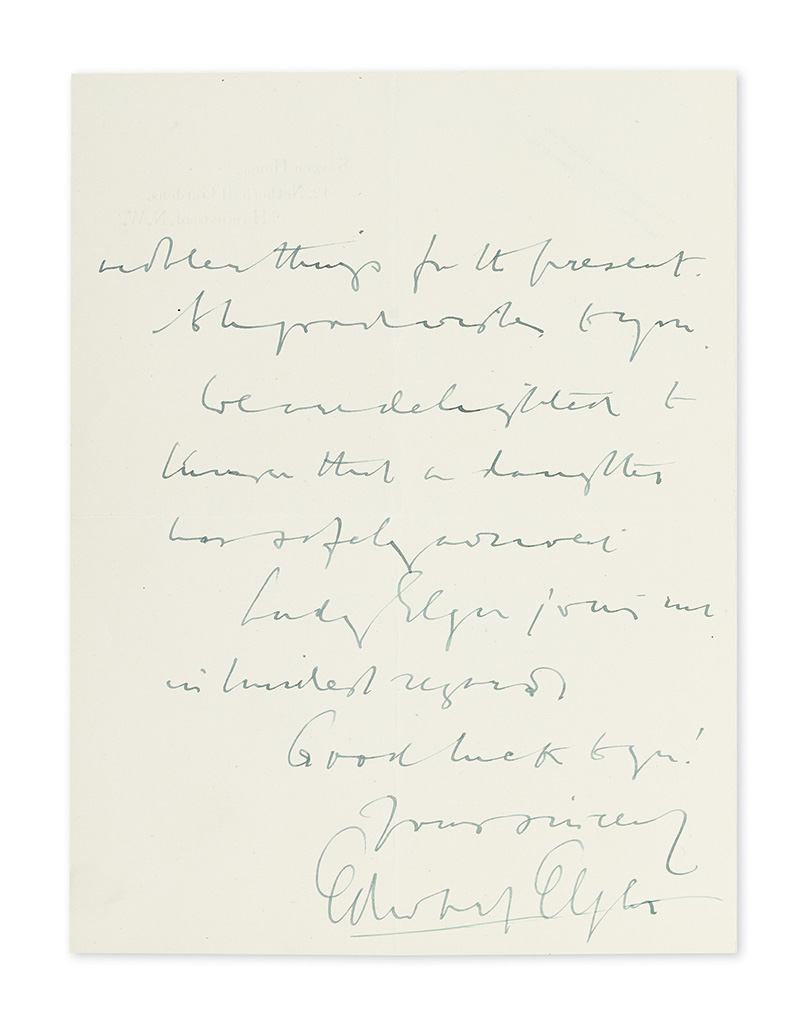 nobler things for the present.
All good wishes to you.
We are delighted to
know that a daughter
has safely arrived
Lady Elgar joins me
in kindest regards
Good luck to you!
Yours sincerely
Edward Elgar